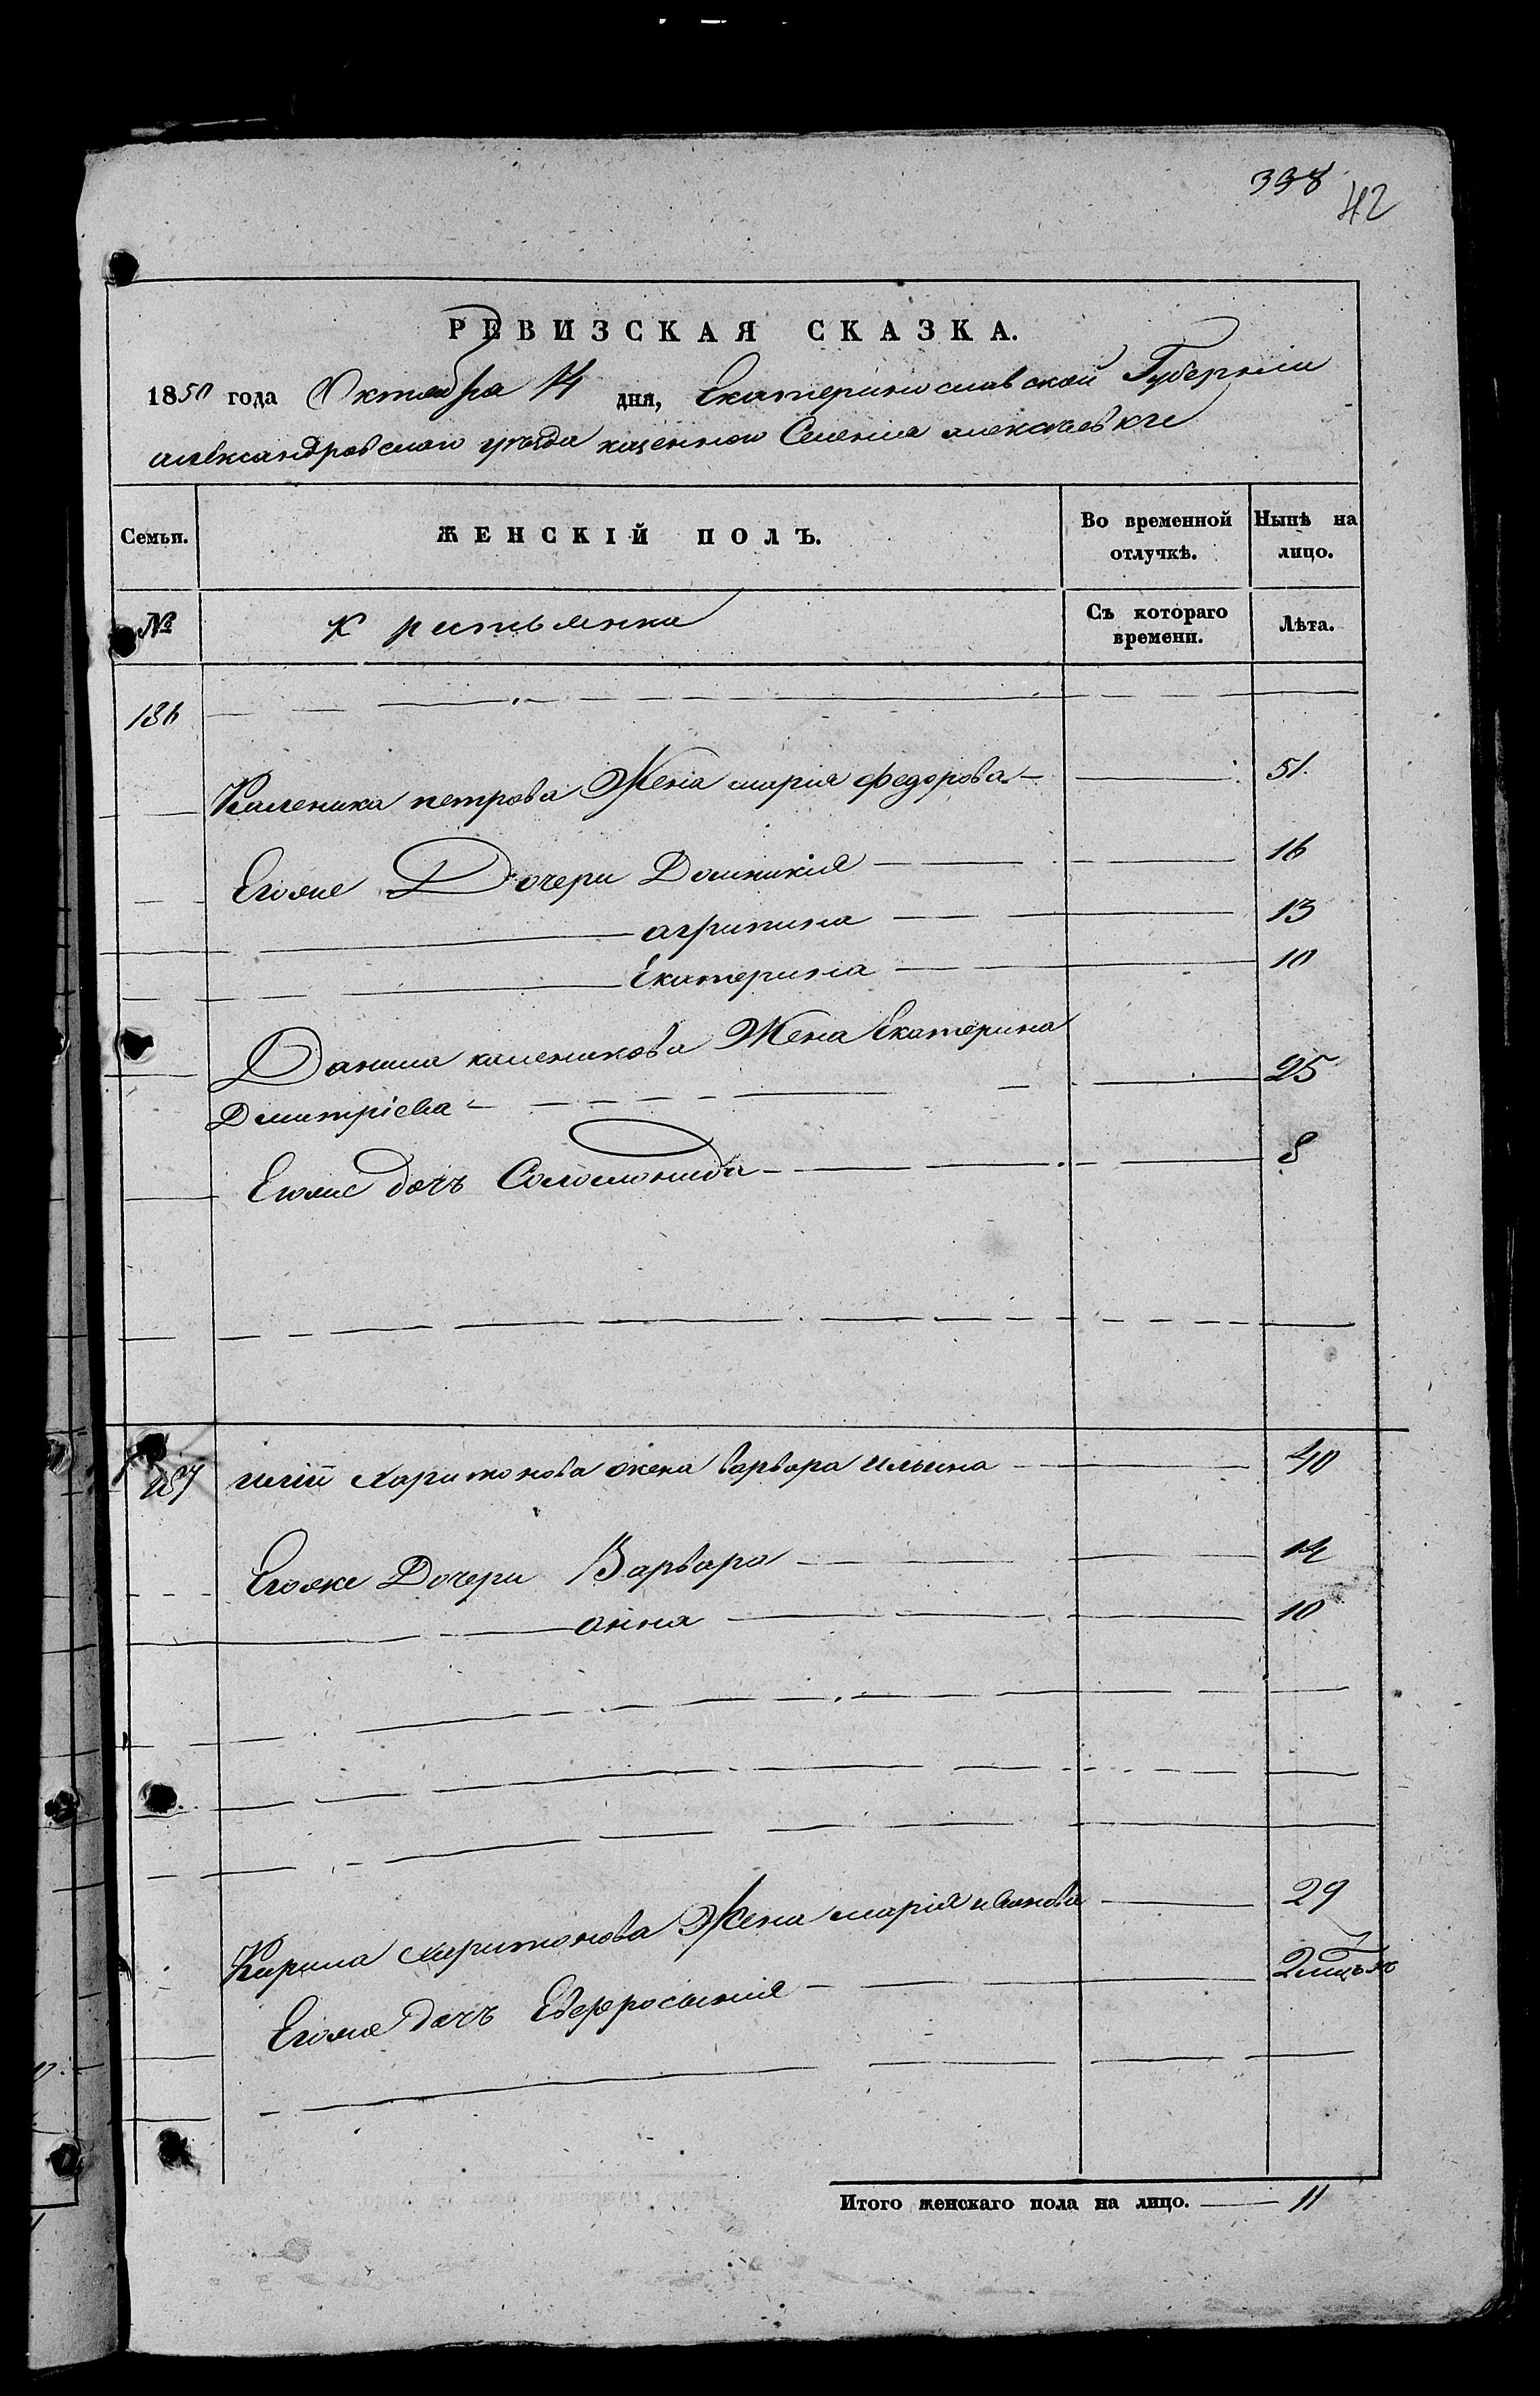 338
42
РЕВИЗСКАЯ СКАЗКА.
1850 года Октября 14 дня, Екатеринославской Губернии
александровскаго уезда казенного Селения алексеевки
Семьи. ЖЕНСКІЙ ПОЛЪ. Во временной отлучкѣ. Нынѣ на лицо.
№ Крестьянки Съ котораго времени. Лѣта.
186
Каленика петрова Жена марія федорова 51.
Егоже Дочери Домникія 16
агрипина 13
Екатерина 10
Данила каленикова Жена Екатерина
Дмитріева 25
Егоже дочъ Соломонида 8
187 харитонова жена варвара ильина 40
Егоже Дочери Варвара 14
анна 10
Кирила харитонова Жена марія иванова 29
Егоже дочъ Евфросинія 2
Итого женскаго пола на лицо. 11